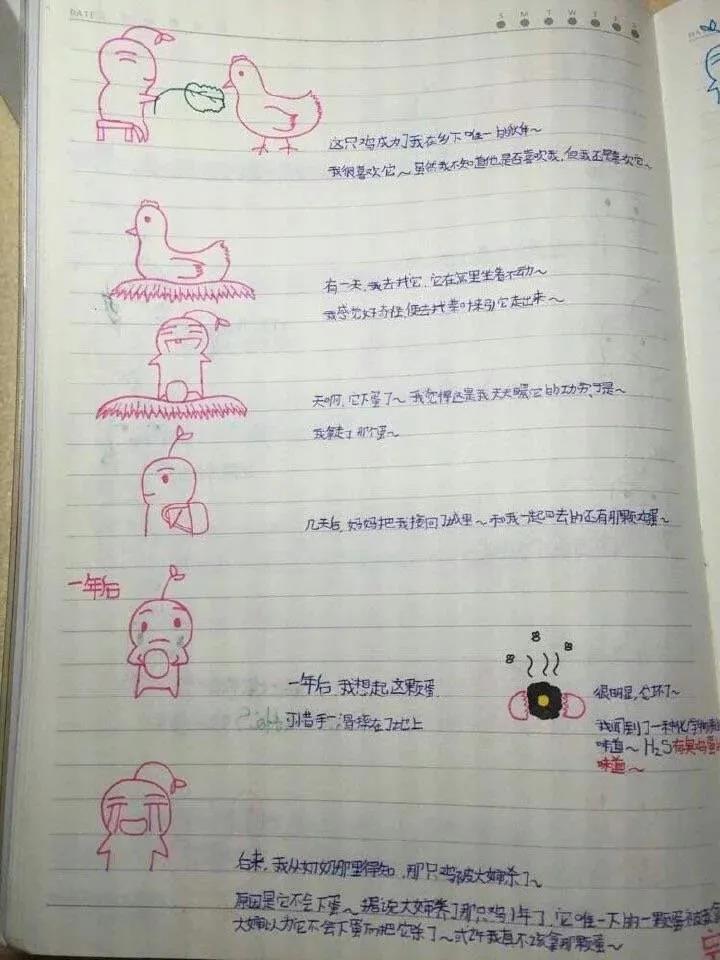 DATE
S M T W T F S
这只鸡成为了我在乡下唯一的伙伴~
我很喜欢它~虽然我不知道他是否喜欢我,但我还是喜欢它~
有一天,我去找它,它在窝里坐着不动~
我感觉好奇怪,便去找菜叶来引它走出来~
天啊,它下蛋了~我觉得这是我天天喂它的功劳,于是~
我拿走了那个蛋~
几天后,妈妈把我接回了城里~和我一起回去的还有那颗鸡蛋~
一年后
一年后,我想起这颗蛋
可惜手一滑摔在了地上
很明显,它坏了~
我闻到了一种化学物质
味道~H₂S有臭鸡蛋
味道~
后来,我从奶奶那里得知,那只鸡被大婶杀了~
原因是它不会下蛋~据说大婶养了那只鸡1年了,它唯一下的一颗蛋被我拿
大婶以为它不会下蛋而把它杀了~或许我真不该拿那颗蛋~